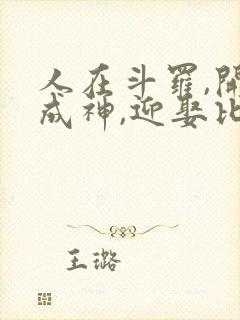 人在斗羅,開
成神,迎娶比
王璐